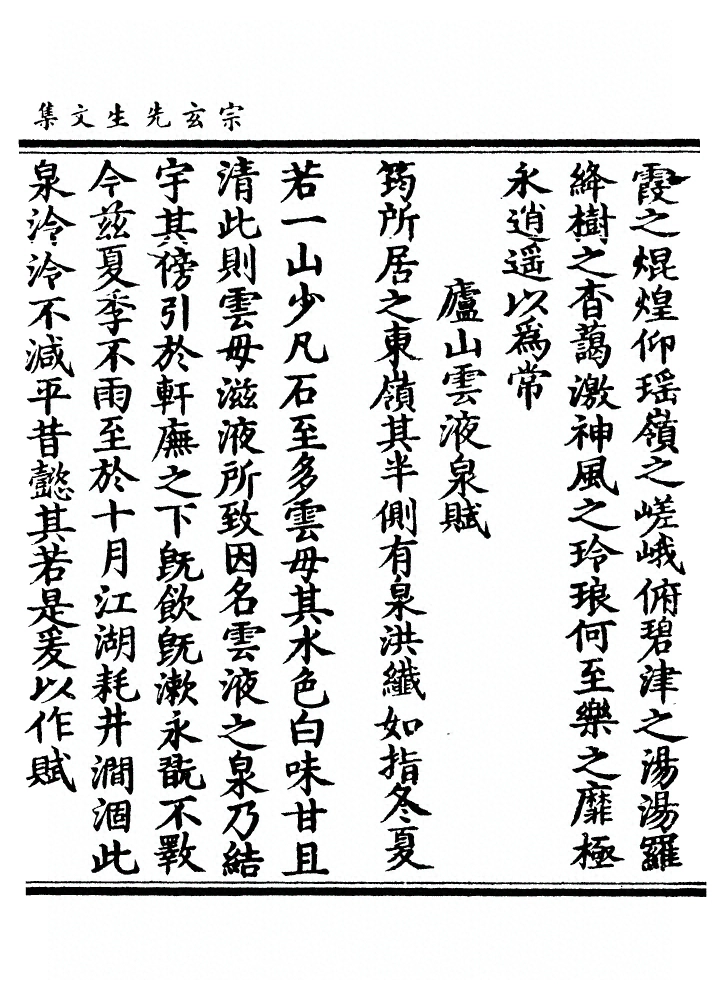 宗玄先生文集
霞之焜煌仰瑶嶺之嵯峨俯碧津之湯湯羅
絳樹之杳藹激神風之玲琅何至樂之靡極
永逍遥以爲常
廬山雲液泉賦
筠所居之東嶺其半側有泉洪纖如指冬夏
若一山少凡石至多雲母其水色白味甘且
清此則雲母滋液所致因名雲液之泉乃結
宇其傍引於軒廡之下旣飲旣漱永翫不斁
今兹夏季不雨至於十月江湖耗井澗涸此
泉泠泠不減平昔懿其若是爰以作賦